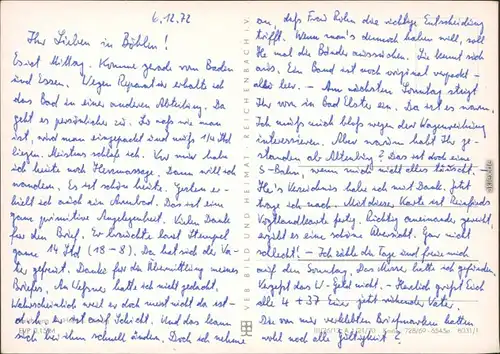 6.12.72
Ihr Lieben in Böhlen!
Es ist Mittag. Komme gerade vom Baden
und Essen. Wegen Reparatur erhalte ich
das Bad in einer anderen Abteilung. Da
geht es persönlicher zu. So naß wie man
ist, wird man eingepackt und muß 1/4 Std
liegen. Meistens schlafe ich. Vor mir habe
ich heute noch Herzmassage. Dann will ich
wandern. Es ist schön heute. Gestern er-
hielt ich auch ein Armbad. Das ist eine
ganz primitive Angelegenheit. Vielen Dank
für den Brief. Er brauchte laut Stempel
ganze 14 Std (18-8). Da hat sich der Va-
ter gefreut. Danke für die Übermittlung meines
Briefes. An Hefner hatte ich nicht gedacht.
Wahrscheinlich weil er doch meist nicht da ist-
doch er ist auf Schicht. Und das kann
sich bei ihm schnell ändern. Doch ich nehme
an, daß Frau die richtige Entscheidung
trifft. Wenn man's dennoch haben will, soll
He mal die Bänder aussuchen. Sie kennt sich
aus. Ein Band ist noch original verpackt -
also leer. - Am nächsten Sonntag steigt
Ihr von in Bad Elster ein. Da ist es warm.
Ich muß mich bloß wegen der Wagenreihung
interessieren. Aber warum habt Ihr ge-
standen ab Altenburg? Das ist doch eine
S-Bahn, wenn mich nicht alles täuscht.
He's Verzeichnis habe ich mit Dank. Jetzt
trage ich nach. - Mit dieser Karte ist Reinfrieds
Vogtlandkarte fertig. Richtig aneinander gereiht,
ergibt es eine schöne Übersicht. Gar nicht
schlecht! - Ich zähle die Tage und freue mich
auf den Sonntag. Das Messe hätte ich gefunden.
Vergeßt das W-Geld nicht. - Herzlich grüßt Euch
alle 4 + 37 Euer jetzt ruhender Vater.
Die von mir verklebten Briefmarken hatten
wohl noch alle Gültigkeit?
VEB BILD UND HEIMAT REICHENBACH I. V.